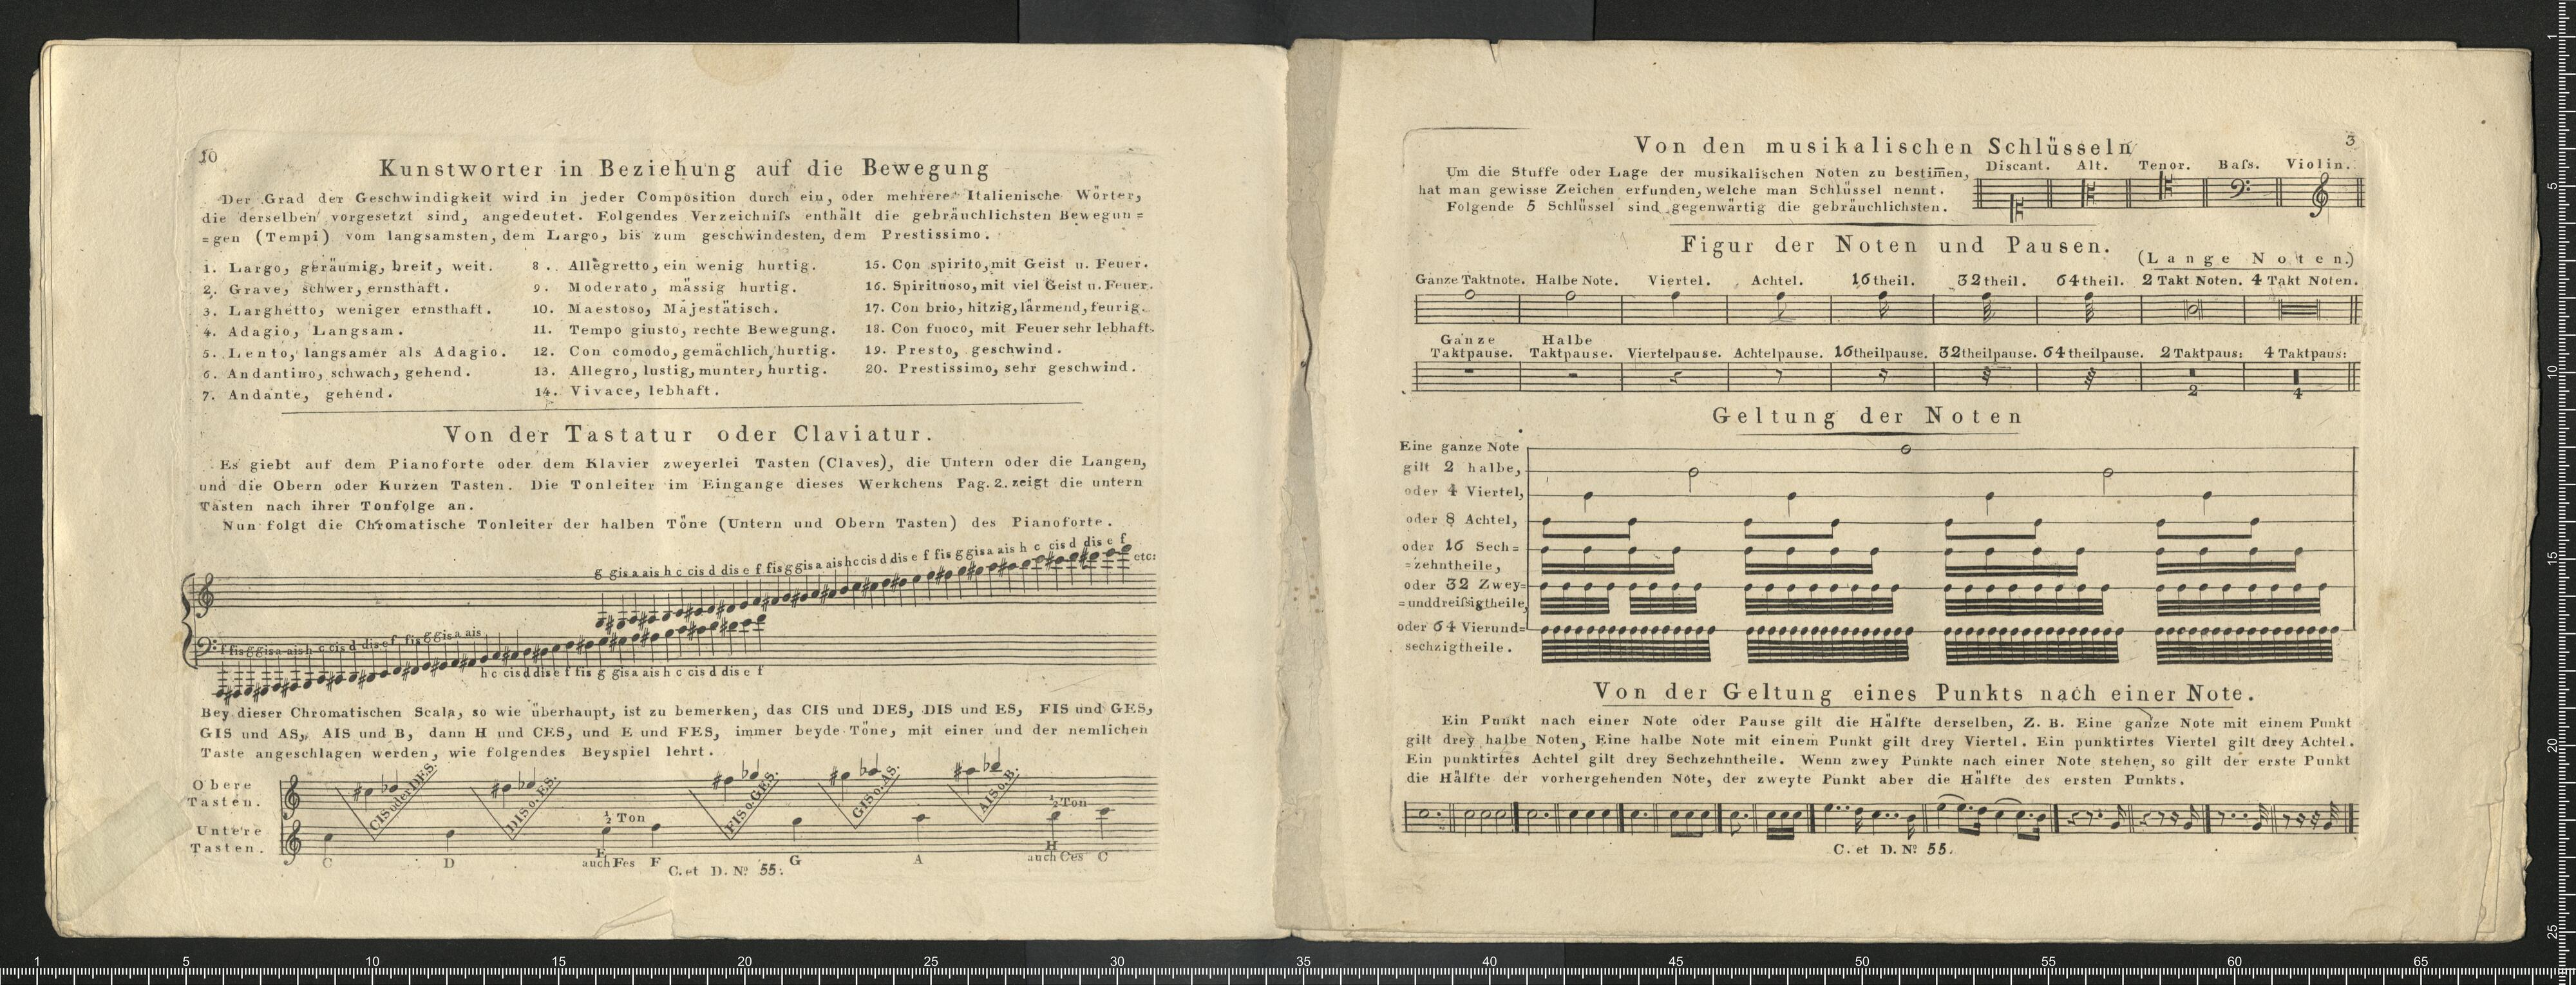 10
Kunstworter in Beziehung auf die Bewegung
Der Grad der Geschwindigkeit wird in jeder Composition durch ein, oder mehrere Italienische Wörter,
die derselben vorgesetzt sind, angedeutet. Folgendes Verzeichniſs enthält die gebräuchlichsten Bewegun=
=gen (Tempi) vom langsamsten, dem Largo, bis zum geschwindesten, dem Prestissimo.
1. Largo, geräumig, breit, weit.
2. Grave, schwer, ernsthaft.
3. Larghetto, weniger ernsthaft.
4. Adagio, Langsam.
5. Lento, langsamer als Adagio.
6. Andantino, schwach, gehend.
7. Andante, gehend.
8. Allegretto, ein wenig hurtig.
9. Moderato, mässig hurtig.
10. Maestoso, Majestätisch.
11. Tempo giusto, rechte Bewegung.
12. Con comodo, gemächlich, hurtig.
13. Allegro, lustig, munter, hurtig.
14. Vivace, lebhaft.
15. Con spirito, mit Geist u. Feuer.
16. Spirituoso, mit viel Geist u. Feuer.
17. Con brio, hitzig, lärmend, feurig.
18. Con fuoco, mit Feuer sehr lebhaft.
19. Presto, geschwind.
20. Prestissimo, sehr geschwind.
Von der Tastatur oder Claviatur.
Es giebt auf dem Pianoforte oder dem Klavier zweyerlei Tasten (Claves), die Untern oder die Langen,
und die Obern oder Kurzen Tasten. Die Tonleiter im Eingange dieses Werkchens Pag. 2. zeigt die untern
Tasten nach ihrer Tonfolge an.
Nun folgt die Chromatische Tonleiter der halben Töne (Untern und Obern Tasten) des Pianoforte.
g gis a ais h c cis d dis e f fis g gis a ais h c cis d dis e f fis g gis a ais h c cis d dis e f etc:
f fis g gis a ais h c cis d dis e f fis g gis a ais
h c cis d dis e f fis g gis a ais h c cis d dis e f
Bey dieser Chromatischen Scala, so wie überhaupt, ist zu bemerken, das CIS und DES, DIS und ES, FIS und GES,
GIS und AS, AIS und B, dann H und CES, und E und FES, immer beyde Töne, mit einer und der nemlichen
Taste angeschlagen werden, wie folgendes Beyspiel lehrt.
Obere
Tasten.
CIS oder DES.
DIS o. ES.
FIS o. GES.
GIS o. AS.
AIS o. B.
½ Ton
½ Ton
Untere
Tasten.
C D E F G A H C
auch Fes
auch Ces
C. et D. Nº 55.
3
Von den musikalischen Schlüsseln
Um die Stuffe oder Lage der musikalischen Noten zu bestim̄en,
hat man gewisse Zeichen erfunden, welche man Schlüssel nennt.
Folgende 5 Schlüssel sind gegenwärtig die gebräuchlichsten.
Discant. Alt. Tenor. Baſs. Violin.
Figur der Noten und Pausen.
(Lange Noten.)
Ganze Taktnote. Halbe Note. Viertel. Achtel. 16theil. 32theil. 64theil. 2 Takt Noten. 4 Takt Noten.
Ganze
Taktpause.
Halbe
Taktpause.
Viertelpause. Achtelpause. 16theilpause. 32theilpause. 64theilpause. 2 Taktpaus: 4 Taktpaus:
2 4
Geltung der Noten
Eine ganze Note
gilt 2 halbe,
oder 4 Viertel,
oder 8 Achtel,
oder 16 Sech=
=zehntheile,
oder 32 Zwey=
=unddreiſsigtheile,
oder 64 Vierund=
sechzigtheile.
Von der Geltung eines Punkts nach einer Note.
Ein Punkt nach einer Note oder Pause gilt die Hälfte derselben, Z. B. Eine ganze Note mit einem Punkt
gilt drey halbe Noten, Eine halbe Note mit einem Punkt gilt drey Viertel. Ein punktirtes Viertel gilt drey Achtel.
Ein punktirtes Achtel gilt drey Sechzehntheile. Wenn zwey Punkte nach einer Note stehen, so gilt der erste Punkt
die Hälfte der vorhergehenden Note, der zweyte Punkt aber die Hälfte des ersten Punkts.
C. et D. Nº 55.
1 5 10 15 20 25 30 35 40 45 50 55 60 65
1 5 10 15 20 25